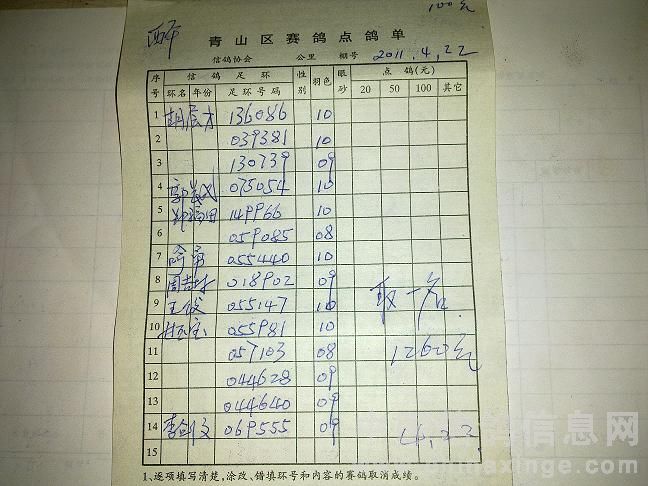 100元
青山区赛鸽点鸽单
信鸽协会 公里 棚号 2011.4.22
序号 信鸽足环 性别 羽色 眼砂 点鸽(元)
环名 年份 足环号码 20 50 100 其它
1 136086 10
2 039381 10
3 130739 09
4 075054 10
5 149966 10
6 059085 08
7 055440 10
8 018902 09
9 王俊 055147 10 取一名
10 055981 10
11 057103 08 1260元
12 044628 09
13 044640 09
14 069555 09 4.22
15
1、逐项填写清楚,涂改、错填环号和内容的赛鸽取消成绩。
信息网
xinge.com